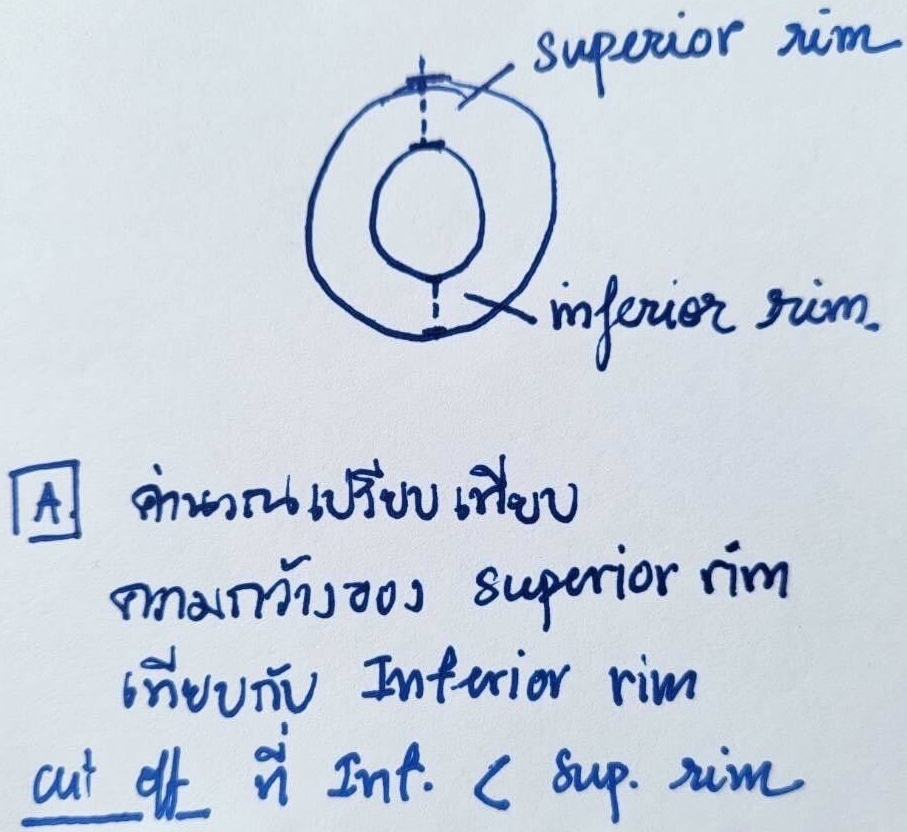 superior rim
inferior rim.
A. คำนวณเปรียบเทียบ
ความกว้างของ superior rim
เทียบกับ Inferior rim
cut off ที่ Inf. < Sup. rim